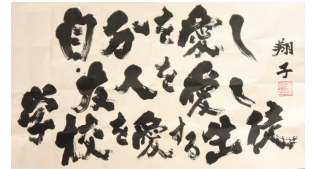 自分を愛し
友人を愛し
学校を愛する生徒
翔子